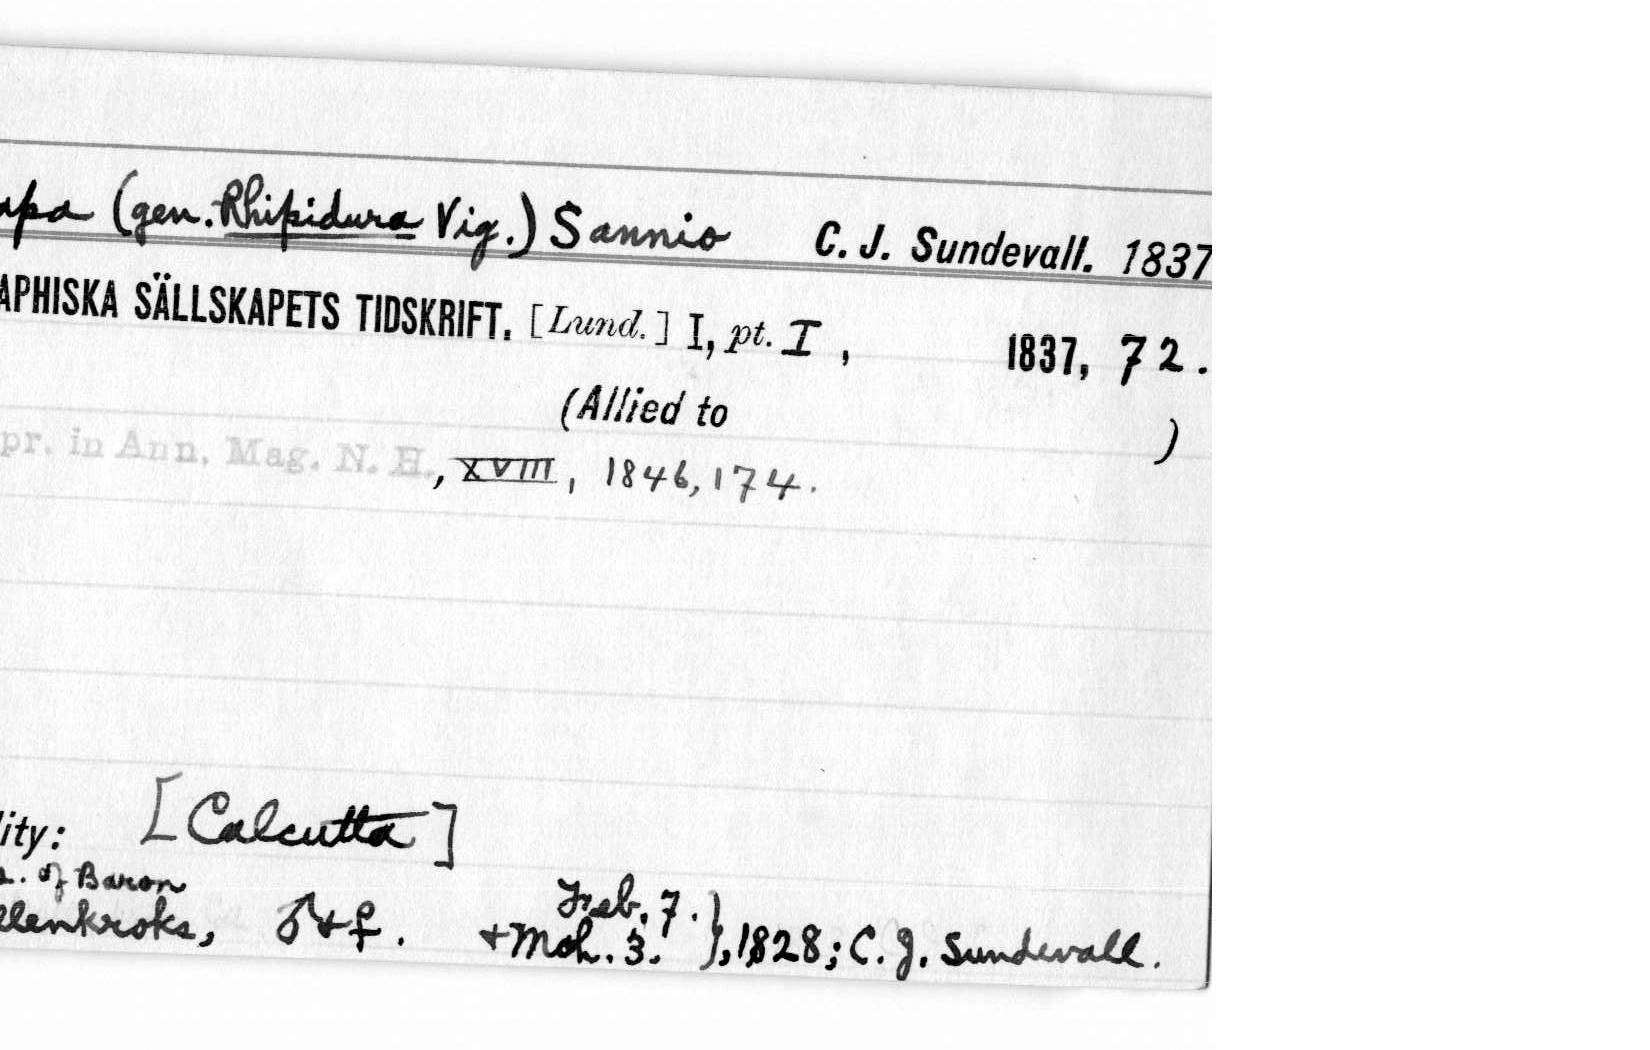 apa (gen. Rhipidura Vig.) Sannio C. J. Sundevall. 1837
APHISKA SÄLLSKAPETS TIDSKRIFT. [Lund.] I, pt. I, 1837, 72.
(Allied to )
pr. in Ann. Mag. N. H., XVIII, 1846, 174.
lity: [Calcutta]
of Baron
llenkroks, ♂ + ♀. Feb. 7. }
+ Mch. 3. }, 1828; C. J. Sundevall.